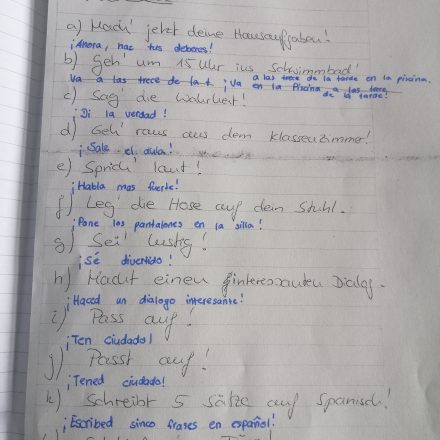 a) Mach' jetzt deine Hausaufgaben!
¡Ahora, haz tus deberes!
b) Geh' um 15 Uhr ins Schwimmbad!
Va a las trece de la t. ¡Va a las trece de la tarde en la piscina.
en la Piscina a las trece
de la tarde!
c) Sag' die Wahrheit!
¡Di la verdad!
d) Geh' raus aus dem Klassenzimmer!
¡Sale el aula!
e) Sprich' laut!
¡Habla mas fuerte!
f) Leg' die Hose auf dein Stuhl.
¡Pone los pantalones en la silla!
g) Sei' lustig!
¡Sé divertido!
h) Macht einen interessanten Dialog.
¡Haced un dialogo interesante!
i) Pass auf!
¡Ten ciudado!
j) Passt auf!
¡Tened ciudado!
k) Schreibt 5 Sätze auf Spanisch!
¡Escribed sinco frases en español!